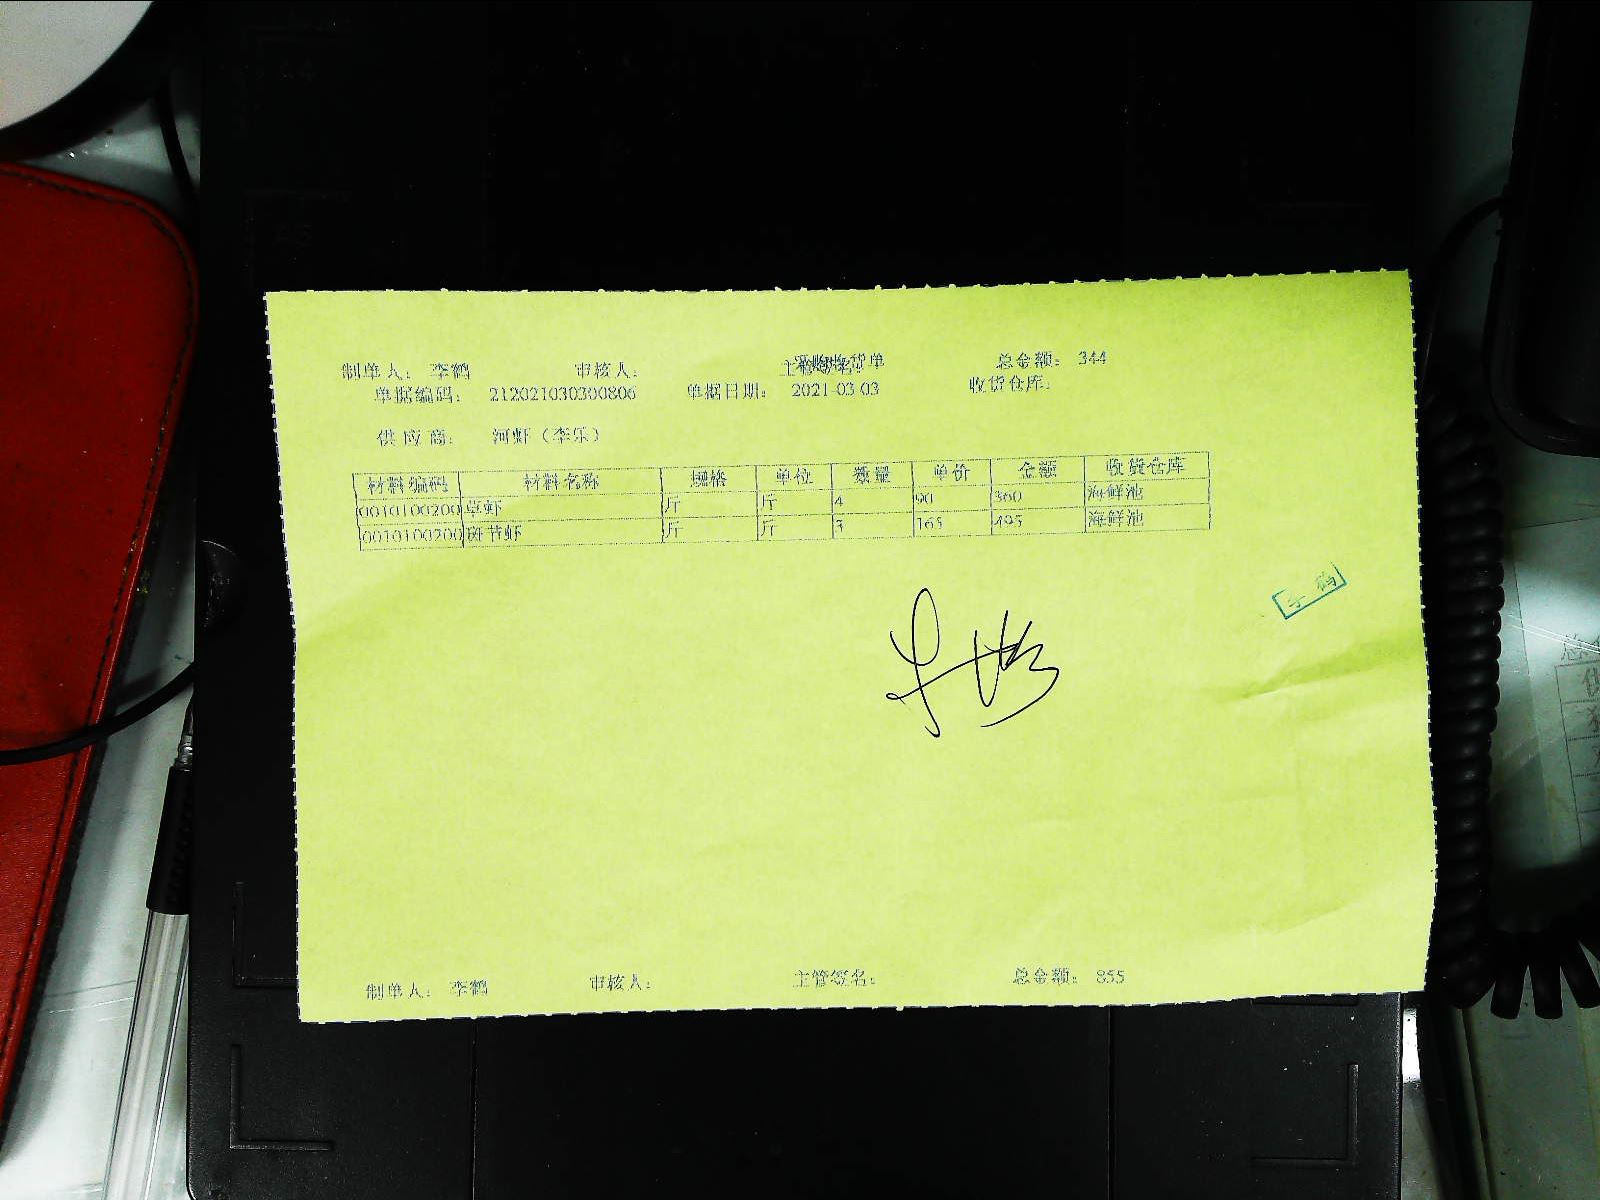 制单人： 李鹤 审核人： 主管签名： 总金额： 344
采购收货单
单据编码： 212021030300806 单据日期： 2021-03-03 收货仓库：
供 应 商： 河虾（李乐）
材料编码 材料名称 规格 单位 数量 单价 金额 收货仓库
0010100200 草虾 斤 斤 4 90 360 海鲜池
0010100200 斑节虾 斤 斤 3 165 495 海鲜池
李鹤
制单人： 李鹤 审核人： 主管签名： 总金额： 855